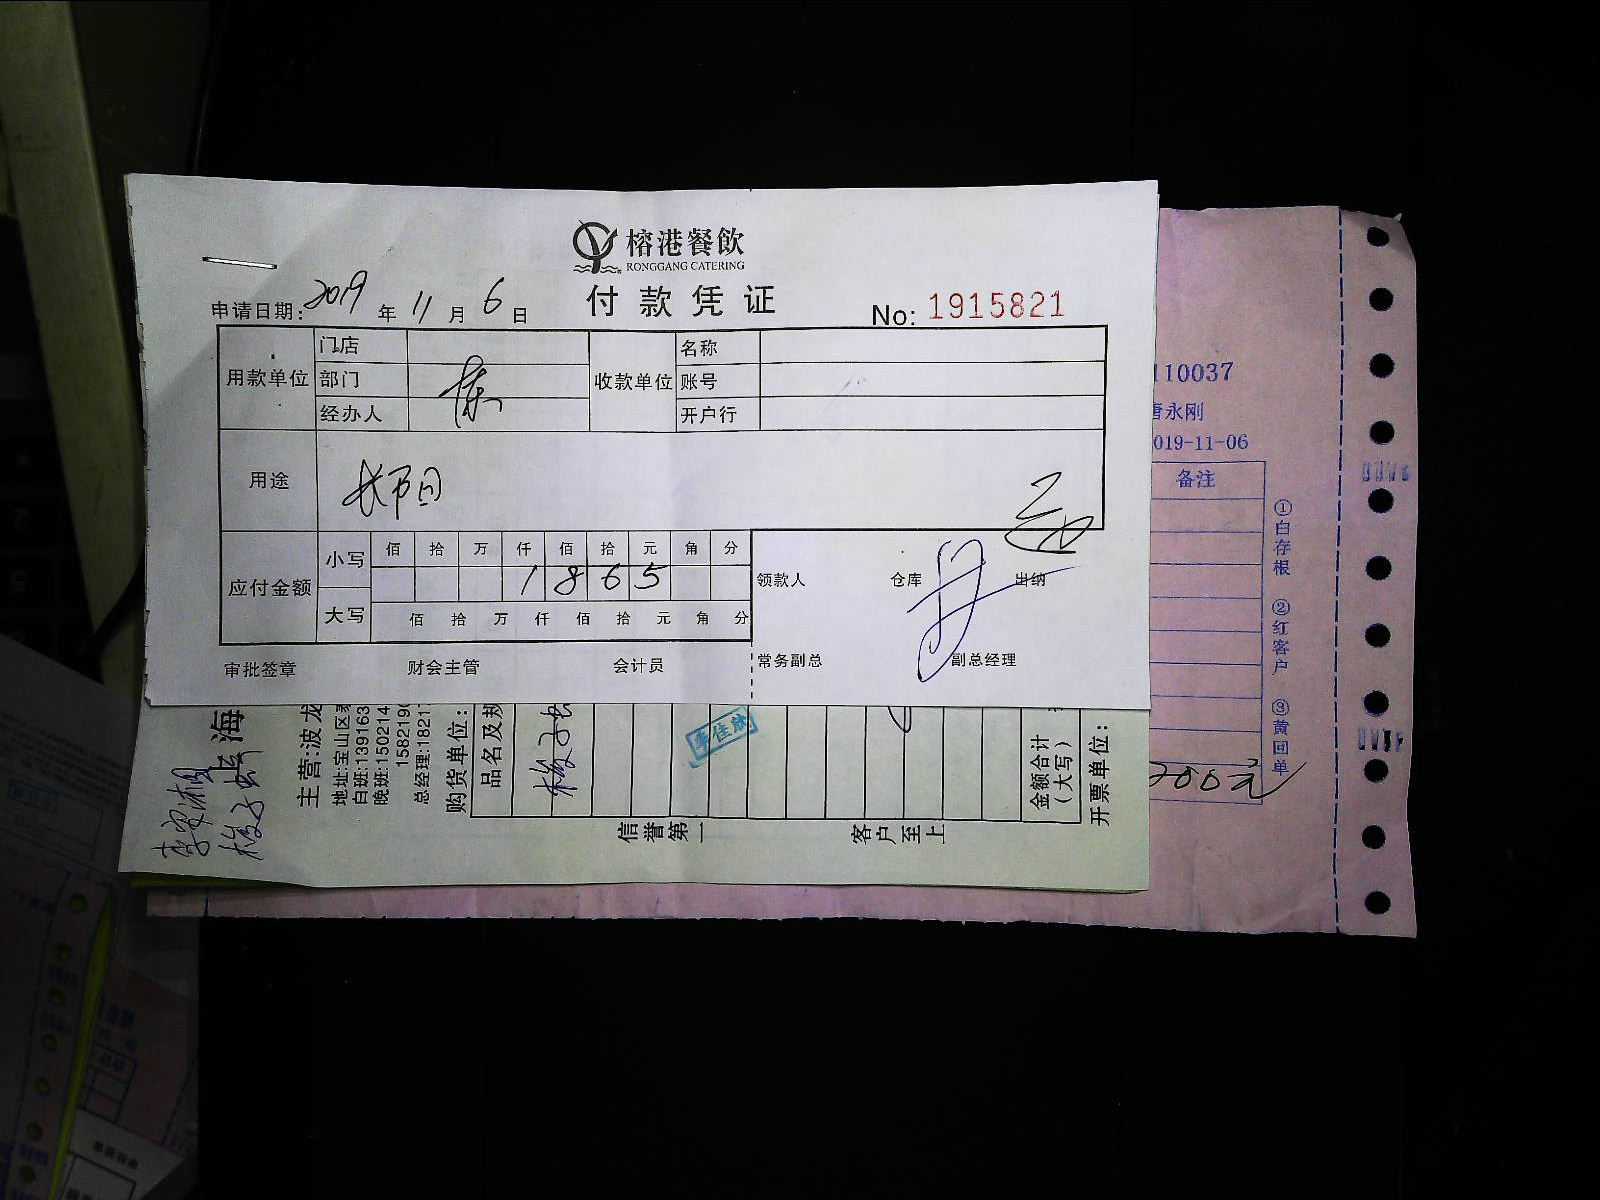 榕港餐飲
RONGGANG CATERING
付款凭证
申请日期: 2019 年 11 月 6 日
No: 1915821
用款单位 门店 收款单位 名称
部门 陈 账号
经办人 开户行
用途 长阳
应付金额 小写 佰 拾 万 仟 佰 拾 元 角 分
1 8 6 5
大写 佰 拾 万 仟 佰 拾 元 角 分
领款人 仓库 出纳
审批签章 财会主管 会计员 常务副总 副总经理
110037
唐永刚
019-11-06
备注
①白存根 ②红客户 ③黄回单
200元
海
主营:波龙
地址:宝山区
白班:139163
晚班:150214
1582190
总经理:18217
购货单位:
品名及规
梭子
李佳欣
金额合计
(大写)
开票单位:
信誉第一
客户至上
梭子